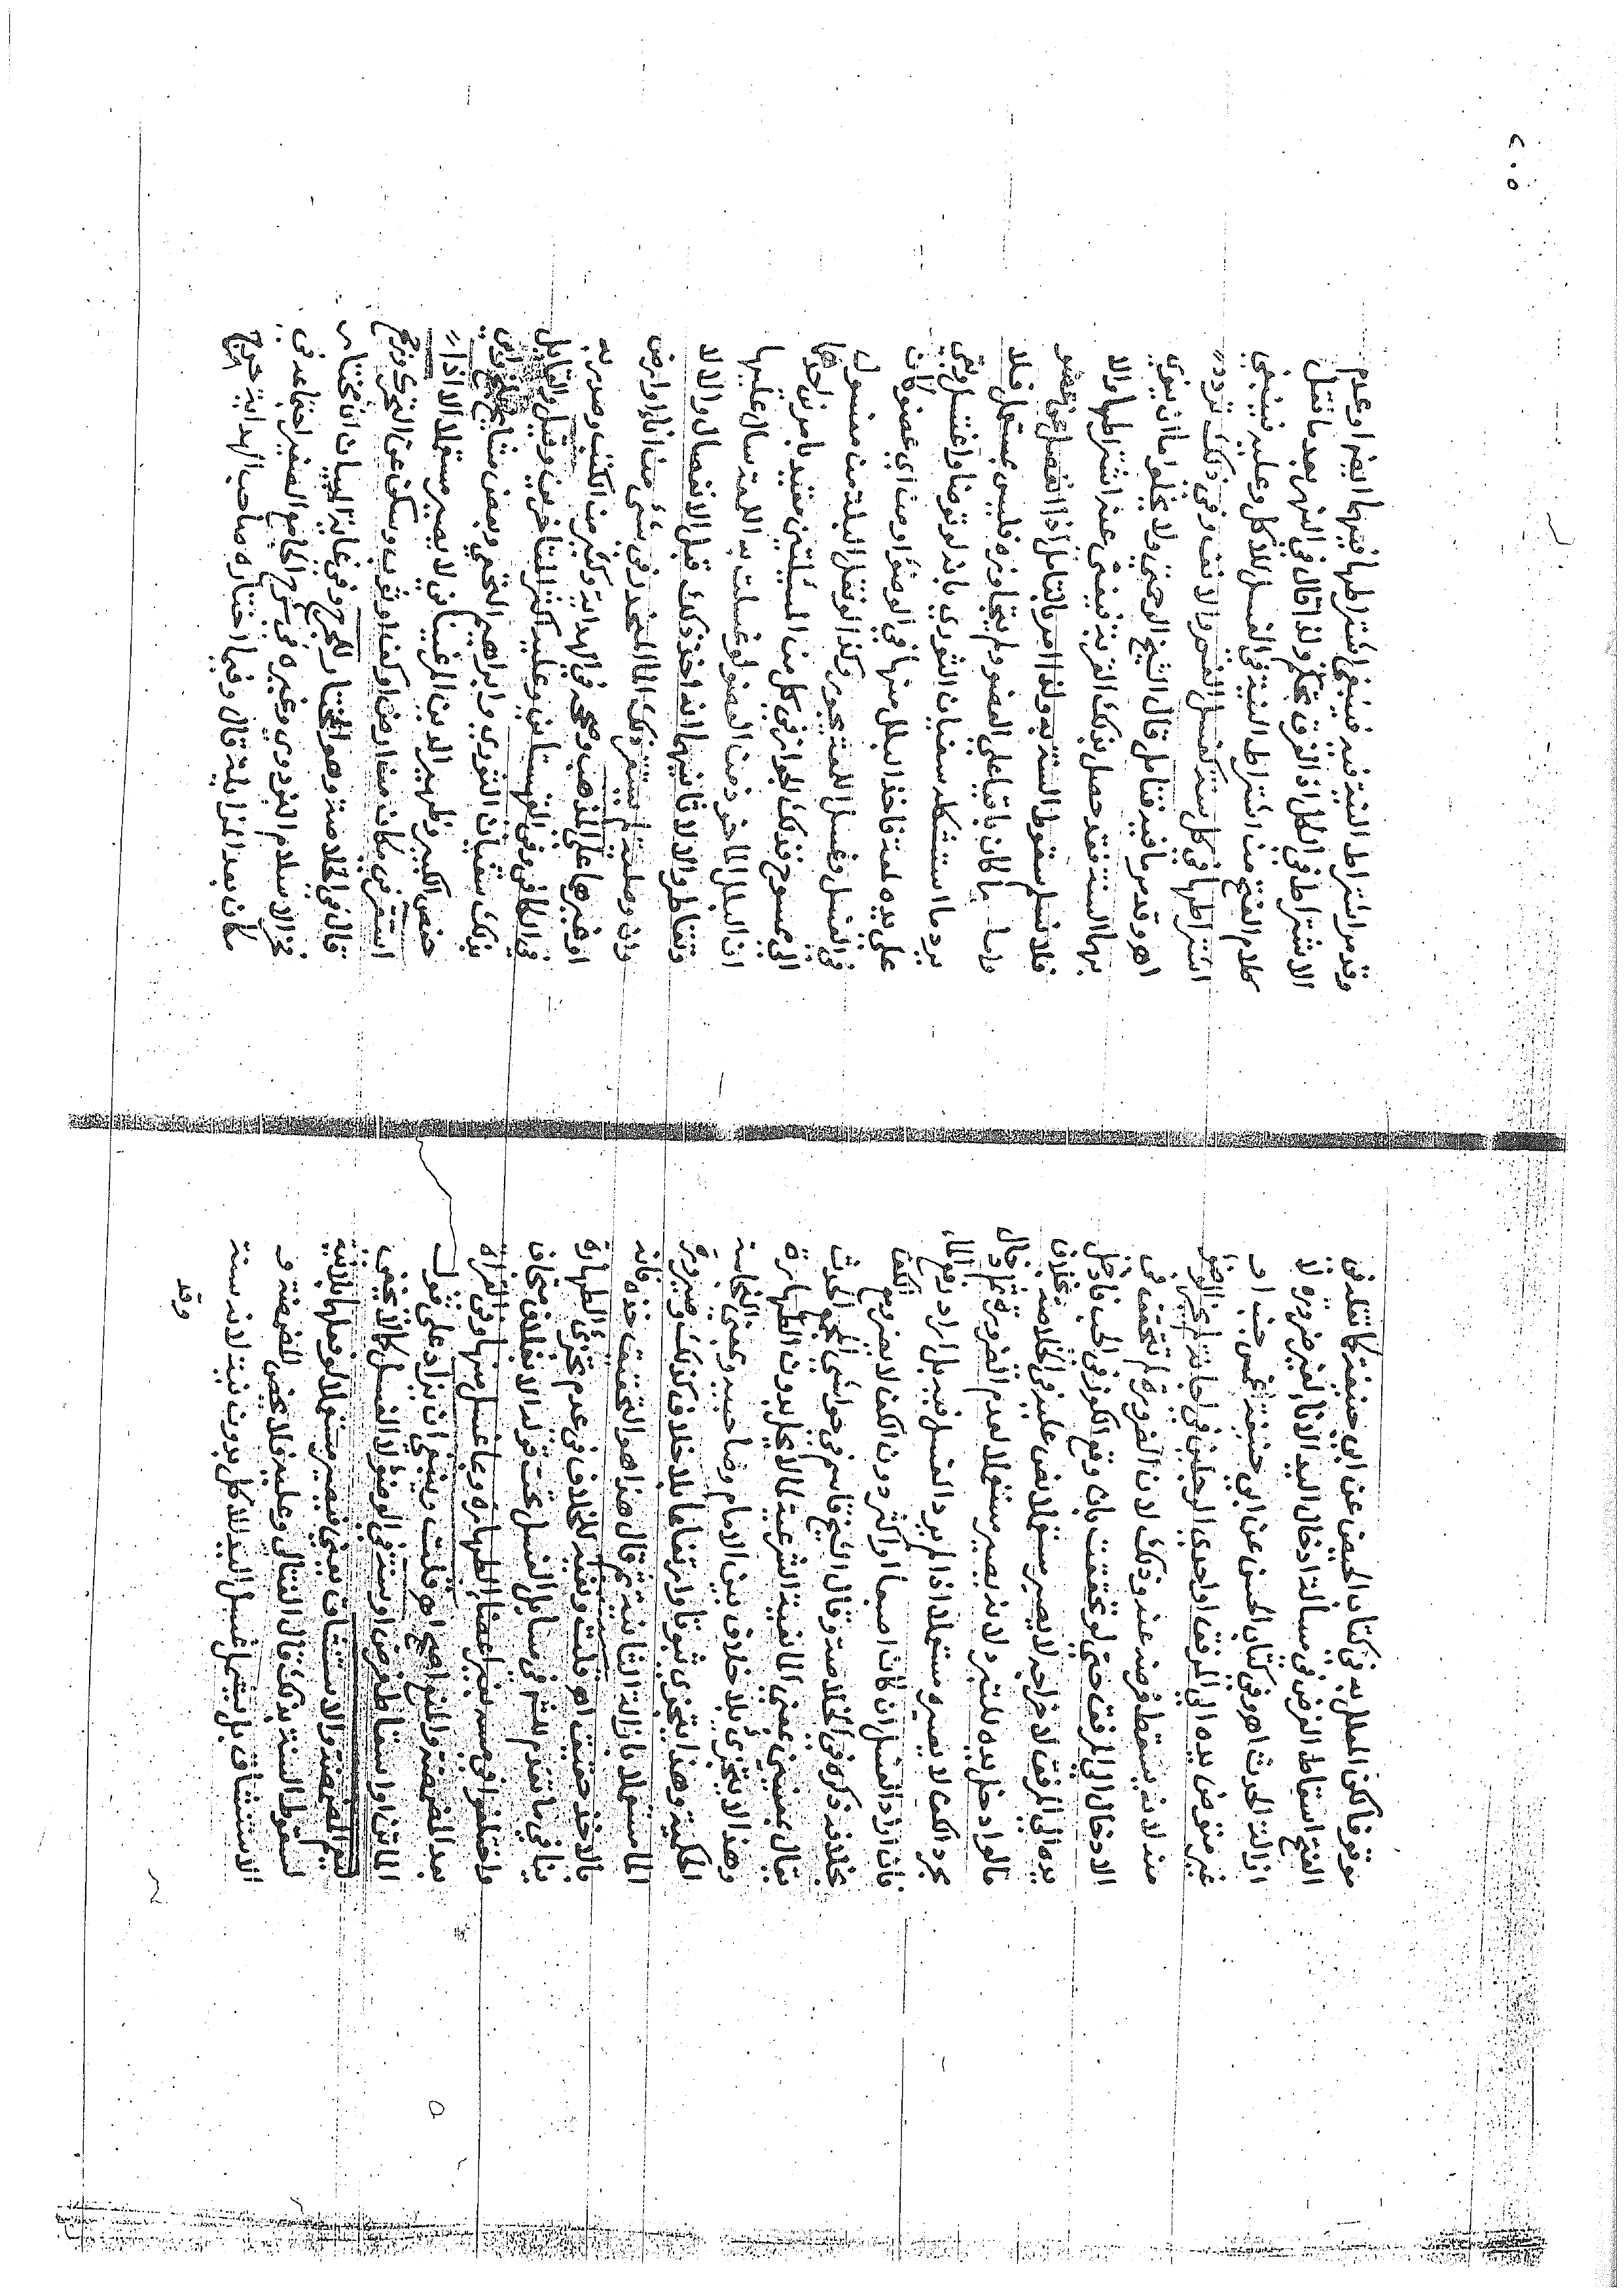 موقوفا لكن المعلل به في كتاب الحسن عن ابي حنيفة كما نقله في
الفتح اسقاط الفرض في مسألة ادخال اليد الاناء لغير ضرورة لا
ازالة الحدث اهـ وفي كتاب الحسن عن ابي حنيفة غمس جنب او
غير متوضئ يده الى المرفق او احدى الرجلين في اجانة لم يجز الوضوء
منه لانه يسقط فرضه عنه وذلك لان الضرورة لم تتحقق في
الادخال الى المرفق حتى لو تحققت بان وقع الكوز في الحب فادخل
يده الى المرفق لاخراجه لا يصير مستعملا نص عليه في الخلاصة بخلاف
مالو ادخل يده للتبرد لانه يصير مستعملا لعدم الضرورة ثم ادخال
مجرد الكف لا يصيره مستعملا اذا لم يرد الغسل فيه بل اراد رفع الماء
فان اراد الغسل ان كان اصبعا او اكثر دون الكف لا يضر ومع الكف
بخلافه ذكره في الخلاصة وقال الشيخ قاسم في حواشي المجمع الحدث
يقال بمعنيين بمعنى المانعية الشرعية لما لا يحل بدون الطهارة
وهذا لا يتجزئ بلا خلاف بين الامام وصاحبيه وبمعنى النجاسة
الحكمية وهذا يتجزى ثبوتا وارتفاعا بلا خلاف كذلك وصيرورة
الماء مستعملا بازالة الثانية ثم قال هذا هو التحقيق خذه فانه
بالاخذ حقيق اهـ قلت ونفيه الخلاف في عدم تجزئ الطهارة
ينافي ما تقدم لهم في مسائل الغسل تحت قوله الا بغلاف متجاف
واختلفوا في مسه بغير اعضاء الطهارة وبما غسل منها وفي القراءة
بعد المضمضة والمنع اصح اهـ قلت وينبغي ان يزاد على قول
الماتن او اسقاط فرض او سنة في الوضوء او الغسل كما لا يخفى
ليعم المضمضة والاستنشاق يعني فيصير مستعملا لو فعلهما بلا نية
لسقوط السنة بذلك قال الفتال وعليه فلا يخص المضمضة و
الاستنشاق بل يشمل غسل اليد للاكل بدون نية لانه سنة
وقد
٢٠٥
وقد مر اشتراط النية فيه فينبغي اشتراطها فيهما ايضا وعدم
الاشتراط في الكل اذ الفرق تحكم ولذا قال في النهر بعد ما نقل
كلام الفتح من اشتراط النية في الغسل للاكل وعليه فينبغي
اشتراطها في كل سنة كغسل الفم والانف وفي ذلك تردد
اهـ وقد مر ما فيه فتأمل قال الشيخ الرحمتي ولا يخلو اما ان ينوي
بها السنة فقد حصل بذلك القربة فيغني عنه اشتراطها والا
فلا نسلم سقوط السنة به ولذا امر بالتأمل اذا انفصل عن عضو
واما ما كان باقيا على العضو ولم يتجاوزه فليس بمستعمل فلا
يرد ما استشكله سفيان الثوري بانه لو توضأ او اغتسل وبقي
على يده لمعة فاخذ البلل منها في الوضوء او من اي عضو كان
في الغسل وغسل اللمعة يجوز وكذا لو نقل البلة من مغسول
الى ممسوح فذلك الجواز في كل من المسئلتين مقيد بامرين احدهما
ان البلل الماخوذ من العضو لو غسلت به اللمعة سال عليها
وتقاطر والا لا ثانيهما انه اخذ ذلك قبل الانفصال والا لا
وان وصلية لم يستقر ذلك الماء المتخذ في شئ من اناء او ارض
او غيرها على المذهب وصححه في الهداية وكثير من الكتب وصدر به
في الكافي وفي القهستاني وعليه اكثر المتأخرين وقيل والقائل
بذلك سفيان الثوري وابراهيم النخعي وبعض مشايخ بلخ وابي
حفص الكبير وظهير الدين المرغيناني لا يصير مستعملا الا اذا
استقر في مكان من ارض او كف او ثوب وسكن عن التحرك ورجح
قال في الخلاصة وهو المختار للحرج وفي غاية البيان انه مختار
فخر الاسلام البزدوي وغيره في شرح الجامع الصغير اجتماعه في
مكان بعد المزايلة قال وفيما اختاره صاحب الهداية حرج